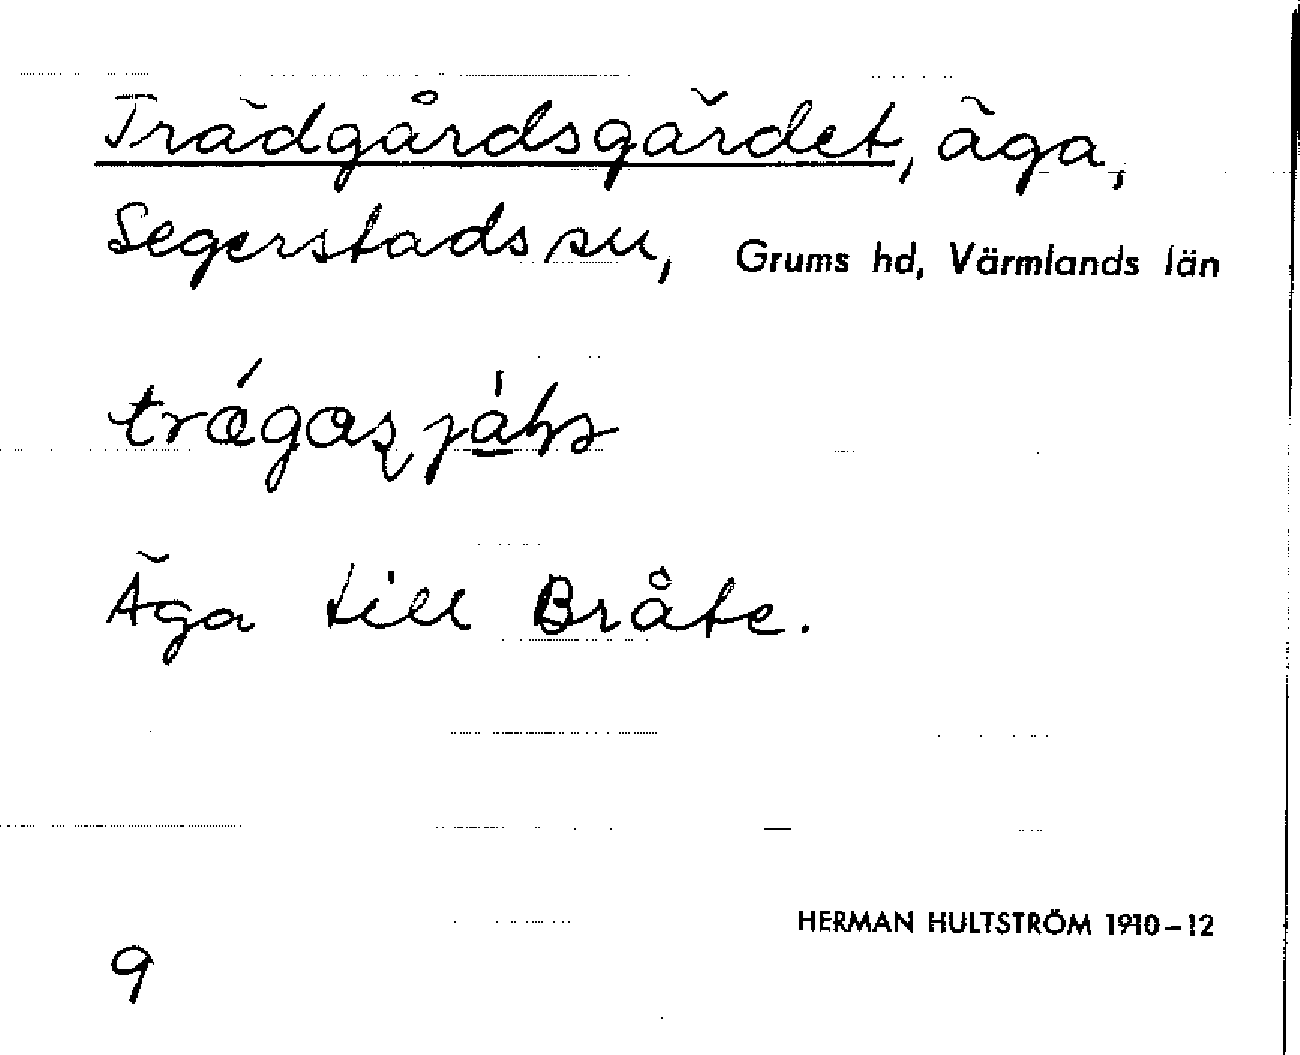 Trädgårdsgärdet, äga,
Segerstads sn, Grums hd, Värmlands län
Äga till Bråte.
HERMAN HULTSTRÖM 1910–12
9